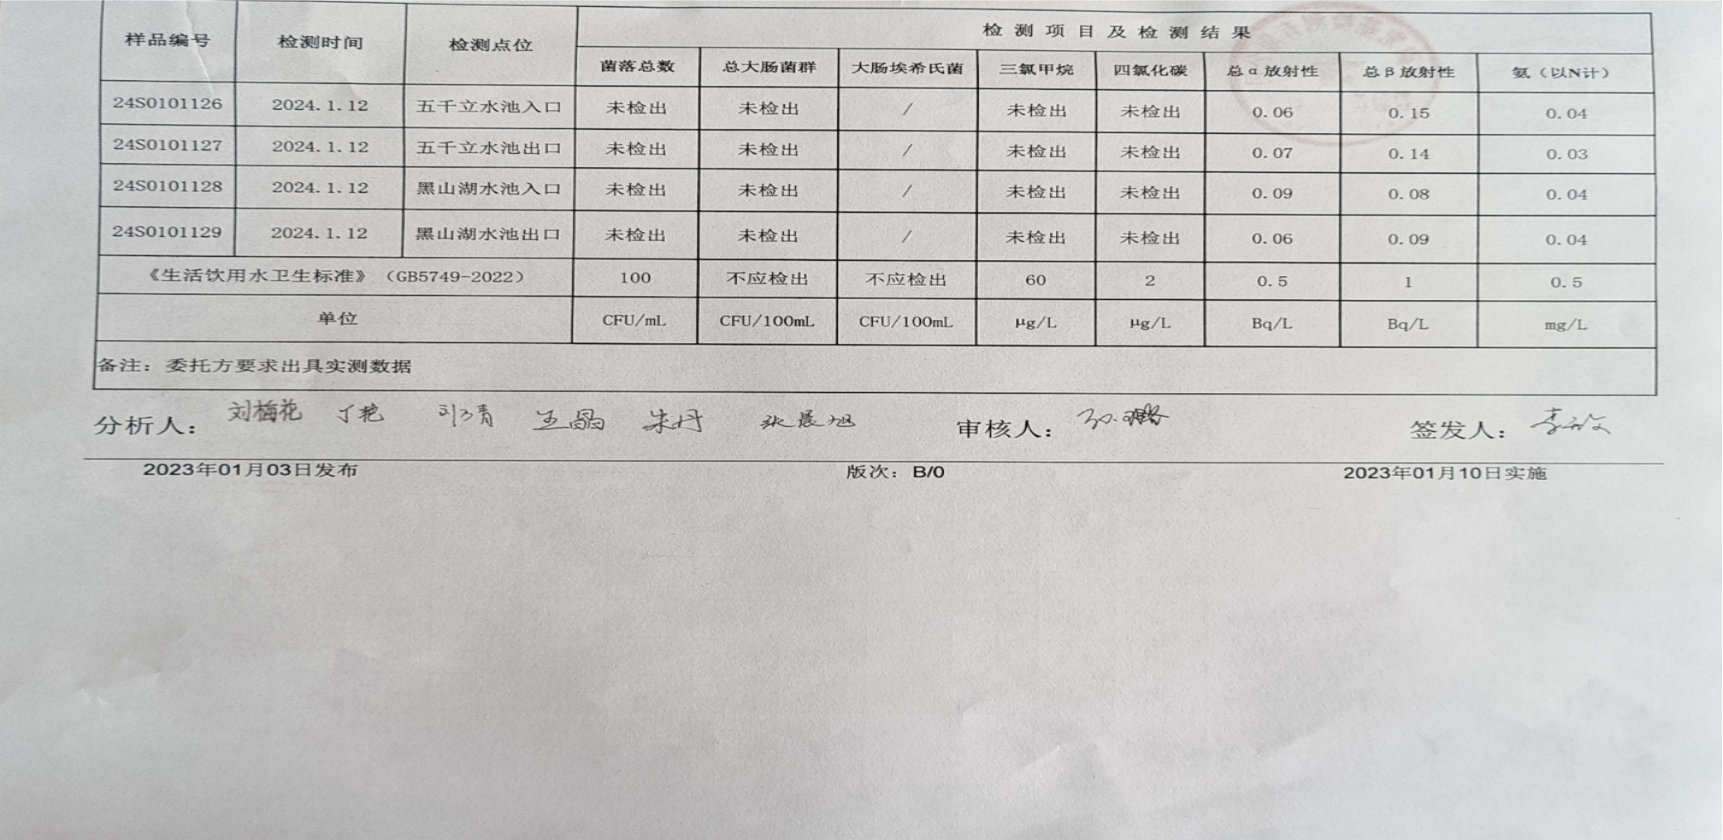 样品编号 检测时间 检测点位 检测项目及检测结果
菌落总数 总大肠菌群 大肠埃希氏菌 三氯甲烷 四氯化碳 总α放射性 总β放射性 氨（以N计）
24S0101126 2024.1.12 五千立水池入口 未检出 未检出 / 未检出 未检出 0.06 0.15 0.04
24S0101127 2024.1.12 五千立水池出口 未检出 未检出 / 未检出 未检出 0.07 0.14 0.03
24S0101128 2024.1.12 黑山湖水池入口 未检出 未检出 / 未检出 未检出 0.09 0.08 0.04
24S0101129 2024.1.12 黑山湖水池出口 未检出 未检出 / 未检出 未检出 0.06 0.09 0.04
《生活饮用水卫生标准》（GB5749-2022） 100 不应检出 不应检出 60 2 0.5 1 0.5
单位 CFU/mL CFU/100mL CFU/100mL μg/L μg/L Bq/L Bq/L mg/L
备注：委托方要求出具实测数据
分析人：刘梅花 丁艳 王晶 朱丹 张晨旭 审核人： 签发人：
2023年01月03日发布 版次：B/0 2023年01月10日实施